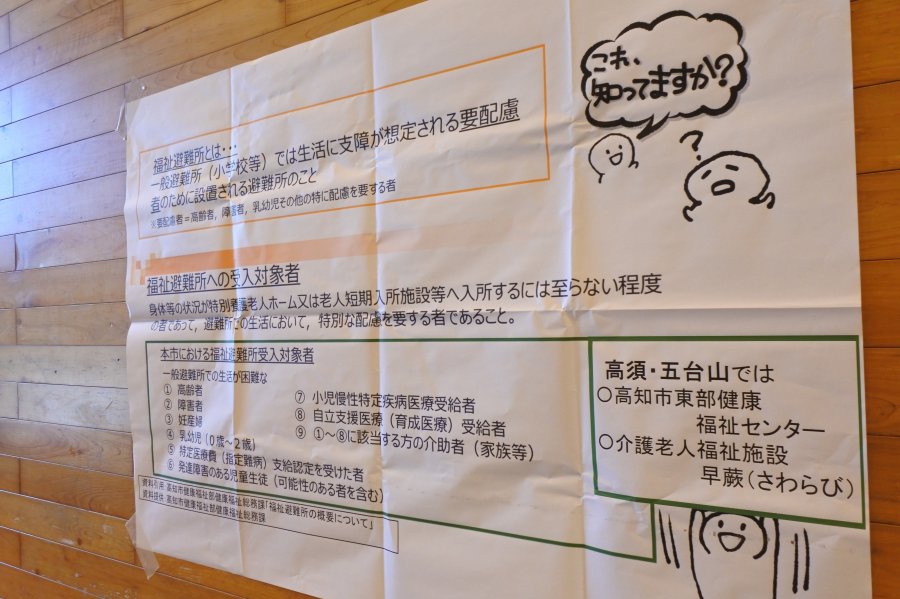 これ、
知ってますか?
?
福祉避難所とは・・・
一般避難所（小学校等）では生活に支障が想定される要配慮
者のために設置される避難所のこと
※要配慮者＝高齢者，障害者，乳幼児その他の特に配慮を要する者
福祉避難所への受入対象者
身体等の状況が特別養護老人ホーム又は老人短期入所施設等へ入所するには至らない程度
の者であって，避難所での生活において，特別な配慮を要する者であること。
本市における福祉避難所受入対象者
一般避難所での生活が困難な
① 高齢者
② 障害者
③ 妊産婦
④ 乳幼児（０歳～２歳）
⑤ 特定医療費（指定難病）支給認定を受けた者
⑥ 発達障害のある児童生徒（可能性のある者を含む）
⑦ 小児慢性特定疾病医療受給者
⑧ 自立支援医療（育成医療）受給者
⑨ ①～⑧に該当する方の介助者（家族等）
高須・五台山では
○高知市東部健康
福祉センター
○介護老人福祉施設
早蕨（さわらび）
資料引用 高知市健康福祉部健康福祉総務課「福祉避難所の概要について」
資料提供 高知市健康福祉部健康福祉総務課